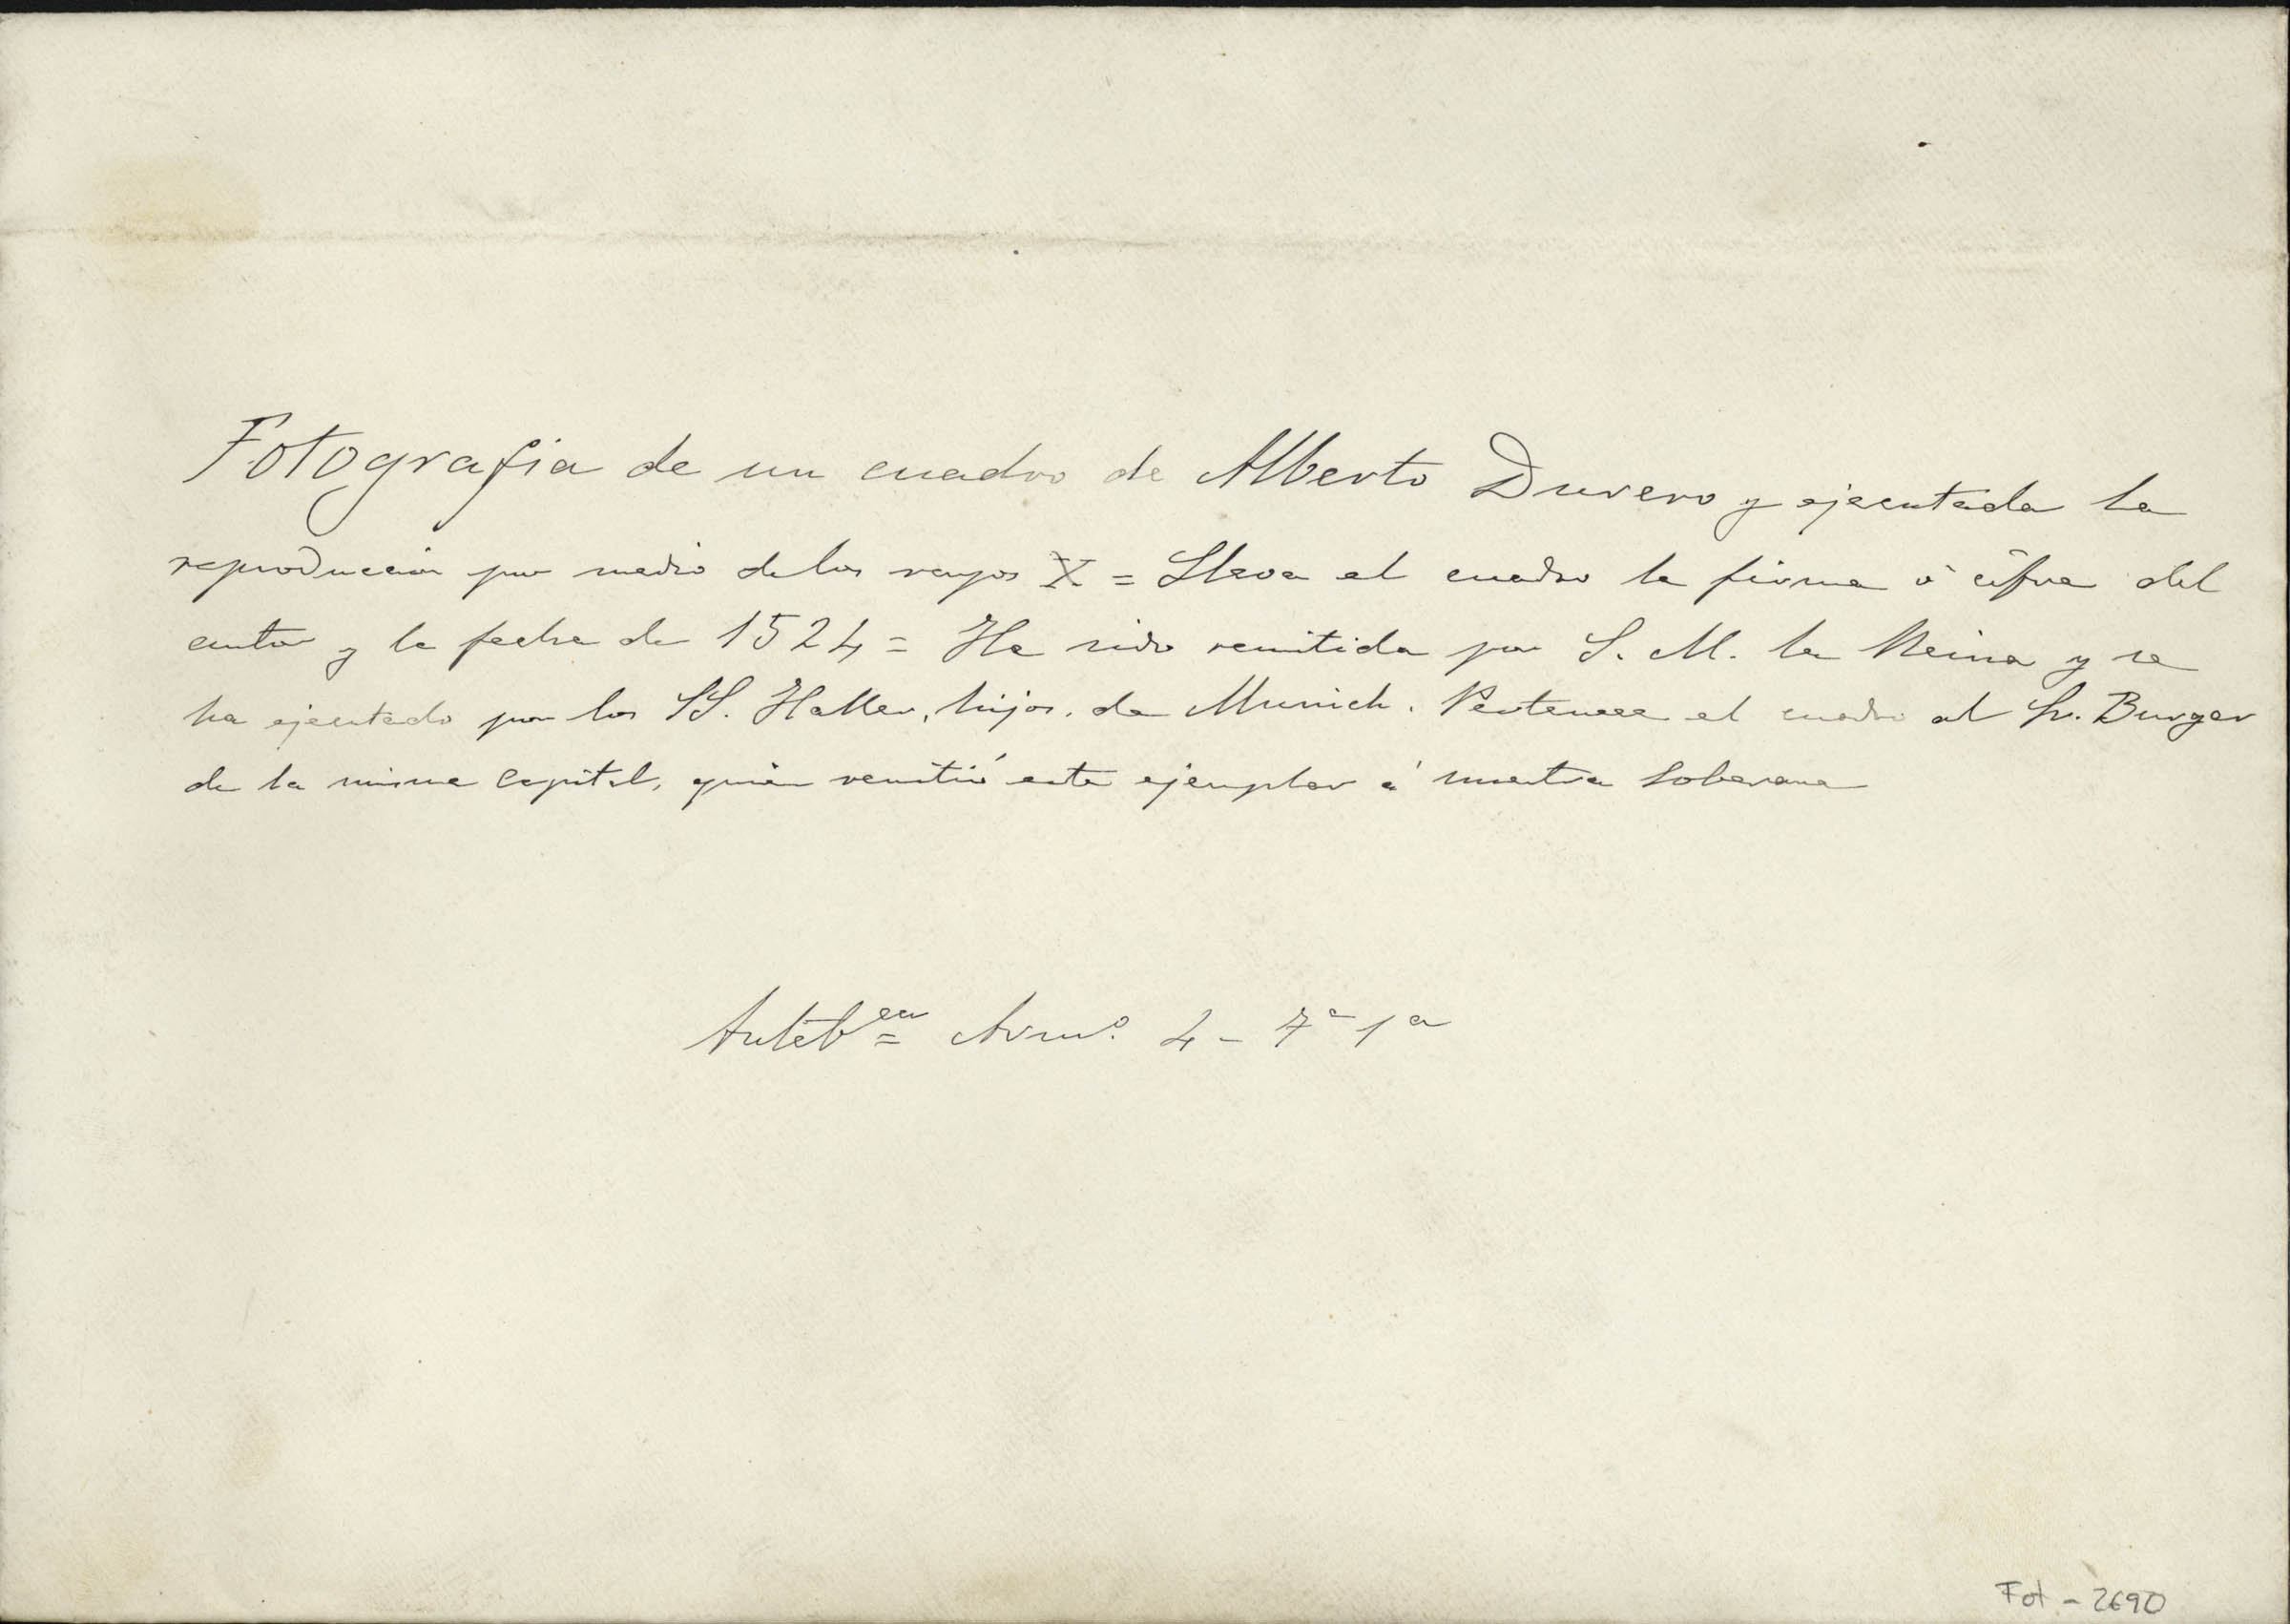 Fotografia de un cuadro de Alberto Durero y ejecutada la
reproducción por medio de los rayos X = Lleva el cuadro la firma ó cifra del
autor y la fecha de 1524 = Ha sido remitida por S. M. la Reina y se
ha ejecutado por los SS. Haller, hijos, de Munich. Pertenece el cuadro al Sr. Burger
de la misma capital, quien remitió este ejemplar á nuestra Soberana
Anteb.ca Armo. 4 - 7a 1a
Fot - 2690